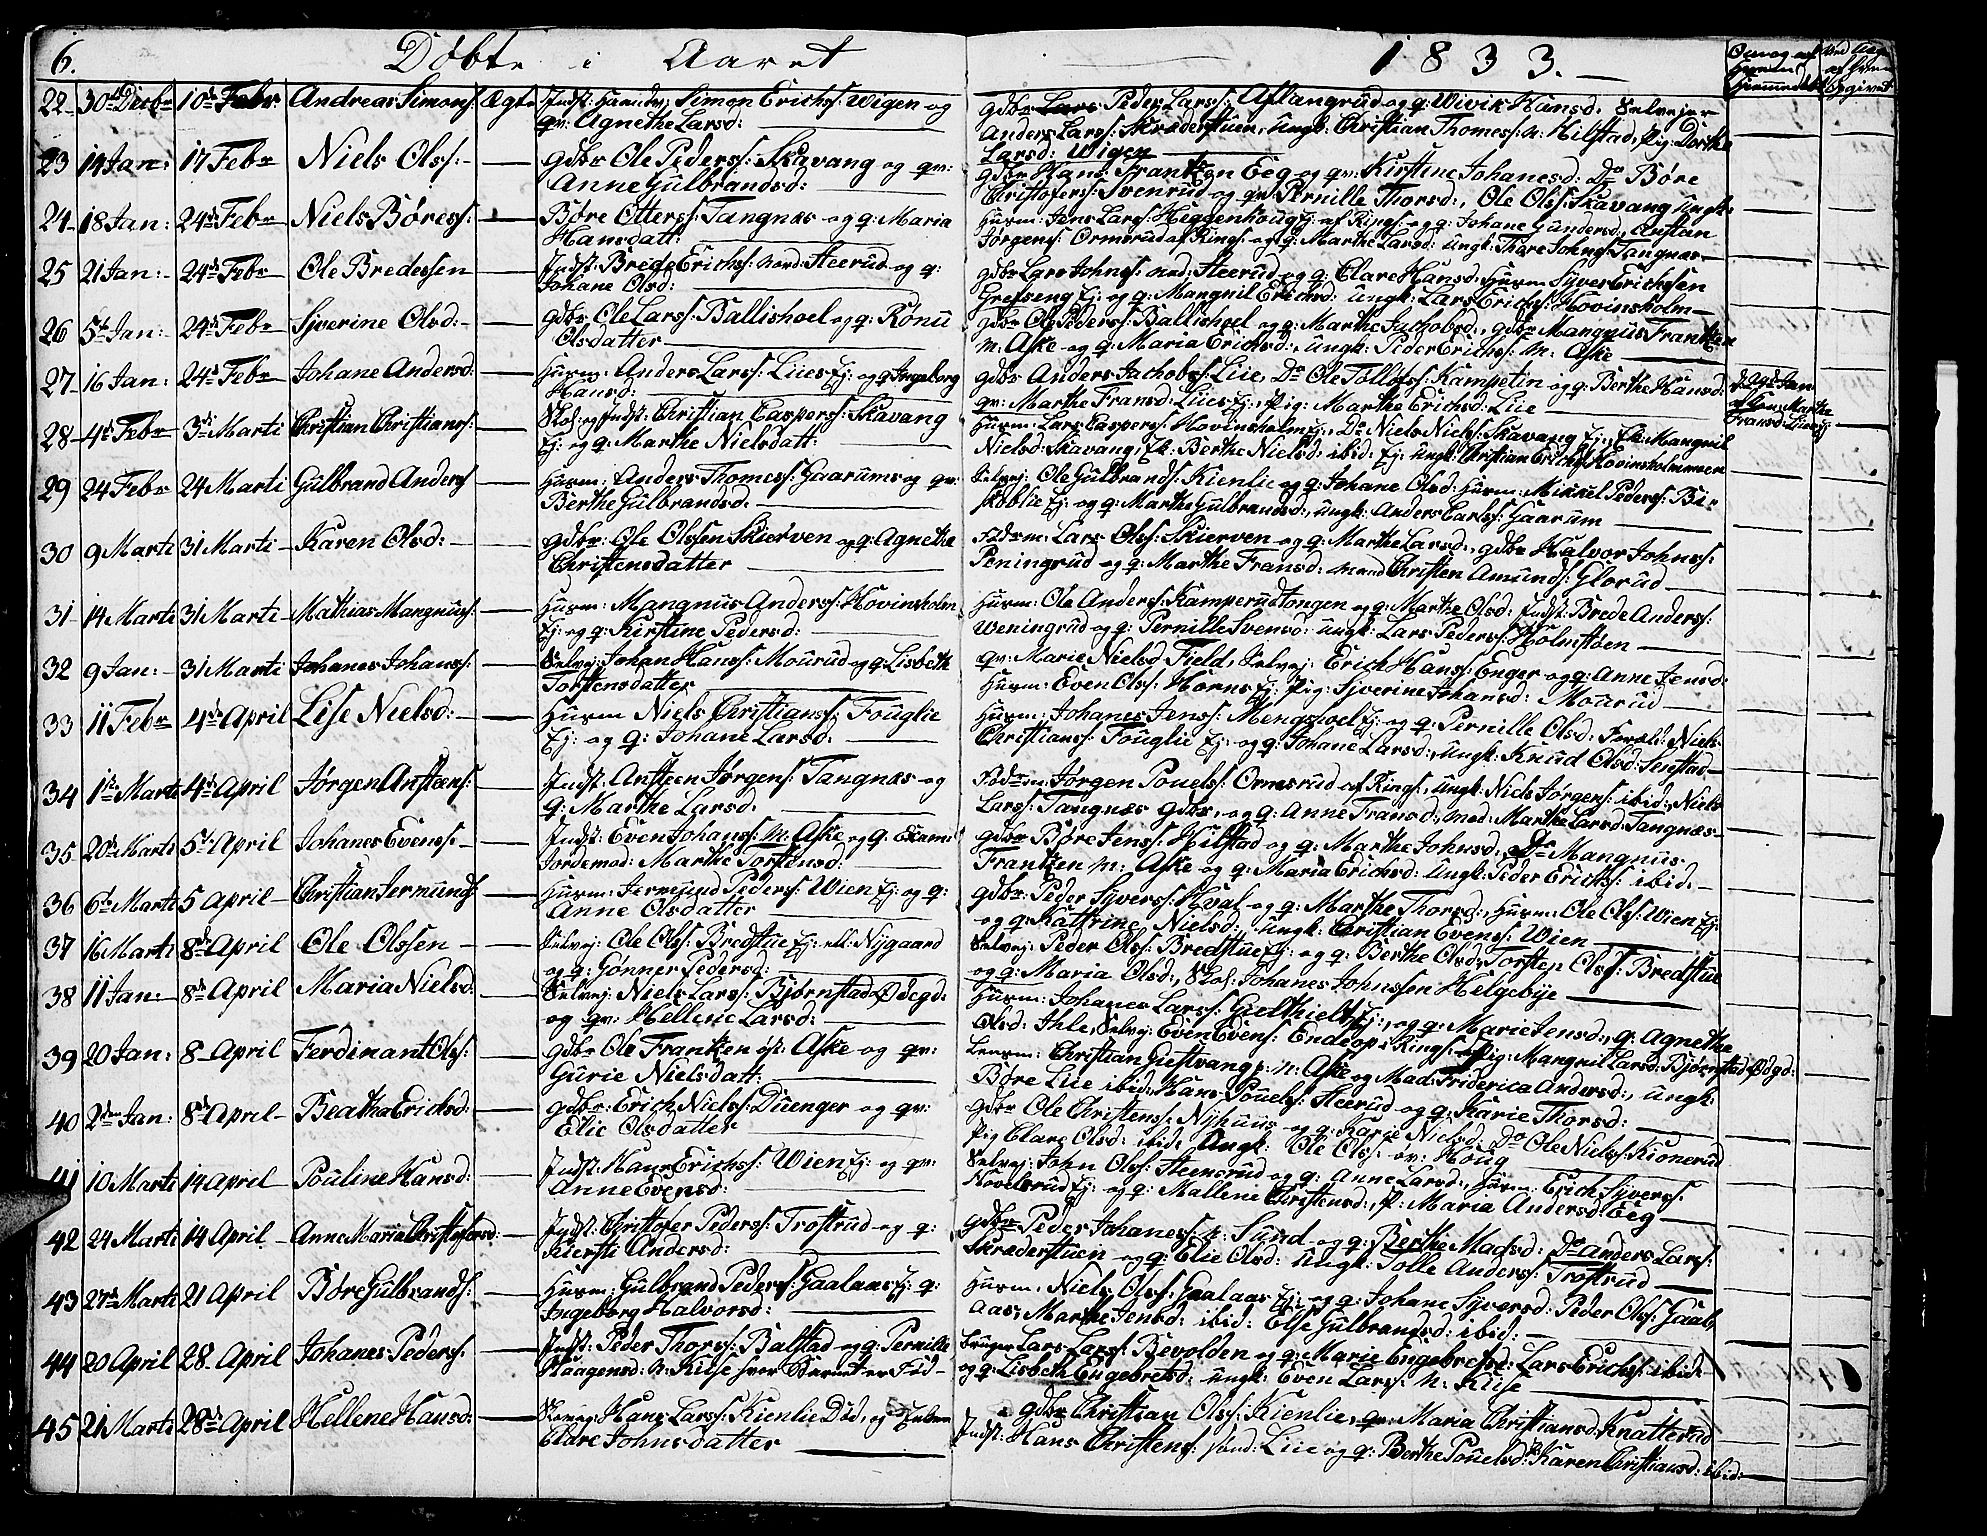 6. Döbte i Aaret 1833.
22 30te Decbr 10de Febr Andreas Simons: Ægte Indst: Simon Erichs: Wigen og
qv: Agnethe Larsd:
gdbr Lars Peder Larss: Aflangrud og q: Wivik Hansd. Selvejer
Anders Larss: Skrædderstuen, Ungk: Christian Thomess: n: Hilstad, Pig: Dorthe
Larsd: Wigen
23 14 Jan: 17 Febr Niels Olss: gdbr Ole Pederss: Skavang og qv:
Anne Gulbrandsd:
gdbr Hans Frantzen Eeg og qv: Kirstine Johanesd: Do Børe
Christofers: Svenrud og qv: Pernille Thorsd:, Ole Olss: Skavang Ungk:
24 18 Jan: 24de Febr Niels Børess: Børe Otterss: Tangnæs og q: Maria
Hansdatt:
Huusm: Jens Larss: Heggenhoug Ej: af Rings: og q: Johane Gundersd, Anstan
Jørgens: Ormsrud af Rings: og q: Marthe Larsd: Ungk: Thore Johns: Tangnæs
25 21 Jan: 24de Febr Ole Bredessen Indst: Brede Erichs: nord: Steerud og q:
Johane Olsd:
gdbr Lars Johnss: ned: Steerud og q: Clare Hansd: Huusm Syver Erichsen
Grefseng Ej: og q: Mangnil Erichsd: Ungk: Lars Erichs: Hovinsholm
26 5te Jan: 24de Febr Syverine Olsd: gdbr Ole Larss: Ballishoel og q: Rønu
Olsdatter
gdbr Ole Peders: Ballishoel og q: Marthe Jachobsd:, gdbr Mangnus Frantzen
n: Aske og q: Maria Erichsd:, Ungk: Peder Erichs: n: Aske
27 16 Jan: 24de Febr Johane Andersd: Huusm: Anders Larss: Liies Ej: og q Ingeborg
Hansd:
gdbr Anders Jachobs: Liie, Do Ole Tollofs: Kampetin og q: Berthe Hansd:
qv: Marthe Fransd: Liies Ej:, Pig: Marthe Erichsd: Liie
28 4de Febr 3de Marti Christian Christians: Christian Caspers: Skavang
Ej: og q: Marthe Nielsdatt:
Huusm: Lars Caspers: Hovinsholm Ej:, Do Niels Niels: Skavang Ej:, Ek: Mangnil
Nielsd: Skavang, Ek: Berthe Nielsd: ibid: Ej: Ungk: Christian Erichs: Hovinsholm
29 24 Febr 24 Marti Gulbrand Anders: Huusm: Anders Thomess: Gaarum og qv:
Berthe Gulbrandsd.
Selvej: Ole Gulbrands: Kienlie og q: Johane Olsd: Huusm: Mikkel Pederss: Bi-
skoblie Ej: og q: Marthe Gulbrandsd:, Ungk: Anders Larss: Gaarum
30 9 Marti 31 Marti Karen Olsd: gdbr: Ole Olssen Skierven og q: Agnethe
Christensdatter
Lars Olss: Skierven og q: Marthe Larsd:, gdbr Halvor Johnss:
Peningrud og q: Marthe Fransd: mand Christen Amunds: Glorud
31 14 Marti 31 Marti Mathias Mangnuss: Huusm: Mangnus Anderss: Hovinsholm
Ej: og q: Kirstine Pedersd:
Huusm: Ole Anderss: Kamperudtongen og q: Marthe Olsd: Indst: Brede Anderss:
Weningrud og q: Pernille Svensd: Ungk: Lars Peders: Holmstøen
32 9 Jan: 31 Marti Johanes Johans: Selvej: Johan Hans: Mourud og q: Lisbeth
Torstensdatter
qv: Marie Nielsd Field, Selvej: Erich Hans: Enger og q: Anne Jensd:
Huusm: Even Olss: Horns Ej: Pig: Syverine Johansd: Mourud
33 11 Febr 4de April Lise Nielsd: Huusm Niels Christians: Fouglie
Ej: og q: Johane Larsd:
Huusm: Johanes Jens: Mengshoel Ej: og q: Pernille Olsd: Foræld: Niels
Christians: Fouglie Ej: og q: Johane Larsd:, Ungk: Knud Olsd: Senstad
34 1ste Marti 4de April Jørgen Anstens: Indst: Ansteen Jørgens: Tangnæs og
q: Marthe Larsd.
Jørgen Pouels: Ormsrud af Rings:, Ungk: Niels Jørgens: ibid:, Niels
Lars: Tangnæs gdbr, og q: Anne Fransd:, Mad: Marthe Larsd: Tangnæs
35 20de Marti 5te April Johanes Evens: Indst: Even Johans: n: Aske og q: Exami
Jordemod: Marthe Torstensd:
gdbr Børe Jens: Hilstad og q: Marthe Johnsd:, Do Mangnus
Frantzen n: Aske og q: Maria Erichsd: Ungk: Peder Erichs: ibid:
36 6te Marti 5 April Christian Jermunds: Huusm: Jermund Peders: Wien Ej: og q:
Anne Olsdatter
gdbr: Peder Syvers: Hval og q: Marthe Thorsd:, Huusm: Ole Ols: Wien Ej:
og q: Kathrine Nielsd: Ungk: Christian Evens: Wien
37 16 Marti 8de April Ole Olssen Selvej: Ole Olss: Bredstue Ej: ell: Nygaard
og q: Gønner Pedersd:
Selvej: Peder Ols: Bredstue Ej: og q: Berthe Olsd, Torsten Ols: Bredstue
og q: Maria Olsd:, Johanes Johnssen Helgebye
38 11 Jan: 8de April Maria Nielsd: Selvej: Niels Lars: Bjørnstad Ødegd:
og qv: Hellene Larsd:
Huusm: Johanes Lars: Gielthiels Ej:, og q: Marie Jensd:, q: Agnethe
Olsd: Ihle, Selvej: Even Evens: Endeop i Rings: Pig: Mangnil Larsd: Bjørnstad Ødgd:
39 20 Jan: 8 April Ferdinant Ols: gdbr Ole Frantzen Aske og qv:
Gurie Nielsdatt:
Lensm: Christian Giestvang n: Aske og Mad: Friderica Andersd:, Ungk:
Børe Liie ibid:, Hans Pouels: Steerud og q: Karie Thorsd:
40 2den Jan: 8de April Beatha Erichsd: gdbr: Erich Niels: Duenger og qv:
Elie Olsdatter
gdbr Ole Christens: Nyhuus og q: Karie Nielsd: Do Ole Niels: Kionerud
Pig Clare Olsd: ibid: Ungk: Ole Ols: ov: Houg
41 10 Marti 14 April Pouline Hansd: Indst: Hans Erichs: Wien Ej: og qv:
Anne Evensd:
Selvej: John Ols: Steensrud og q: Anne Larsd:, Huusm: Erich Syvers:
Hovelsrud Ej: og q: Mallene Christensd:, P: Maria Andersd: Eeg
42 24 Marti 14 April Anne Maria Christofersd: Indst: Christofer Peders: Trostrud og q:
Kiersti Andersd:
gdbr Peder Johaness: n: Sund og q: Berthe Madsd: Do Anders Lars:
Skrederstuen og q: Elie Olsd: Ungk: Tolle Anders: Trostrud
43 27de Marti 21 April Børe Gulbrands: Huusm: Gulbrand Peders: Gaalaas Ej: q:
Ingeborg Halvorsd:
Huusm: Niels Ols: Gaalaas Ej: og q: Johane Syversd: Peder Ols: Gaal-
aas, Marthe Jensd: ibid: Else Gulbrandsd: ibid:
44 20 April 28 April Johanes Peders: Indst: Peder Thors: Balstad og q: Pernille
Haagensd: n: Kiise hvor Barnet er Fød
Bruger Lars Lars: Bevolden og q: Marie Engebretsd: Lars Erichs: ibid:
og q: Lisbeth Engebretsd: Ungk: Even Lars: n: Kiise
45 21 Marti 28de April Hellene Hansd: Hans Larss: Kienlie
Clare Johnsdatter
gdbr Christian Ols: Kienlie, qv: Maria Christiansd: Knatterud
Indst: Hans Christens: Liie og q: Berthe Pouelsd: Karen Christiansd: ibid: